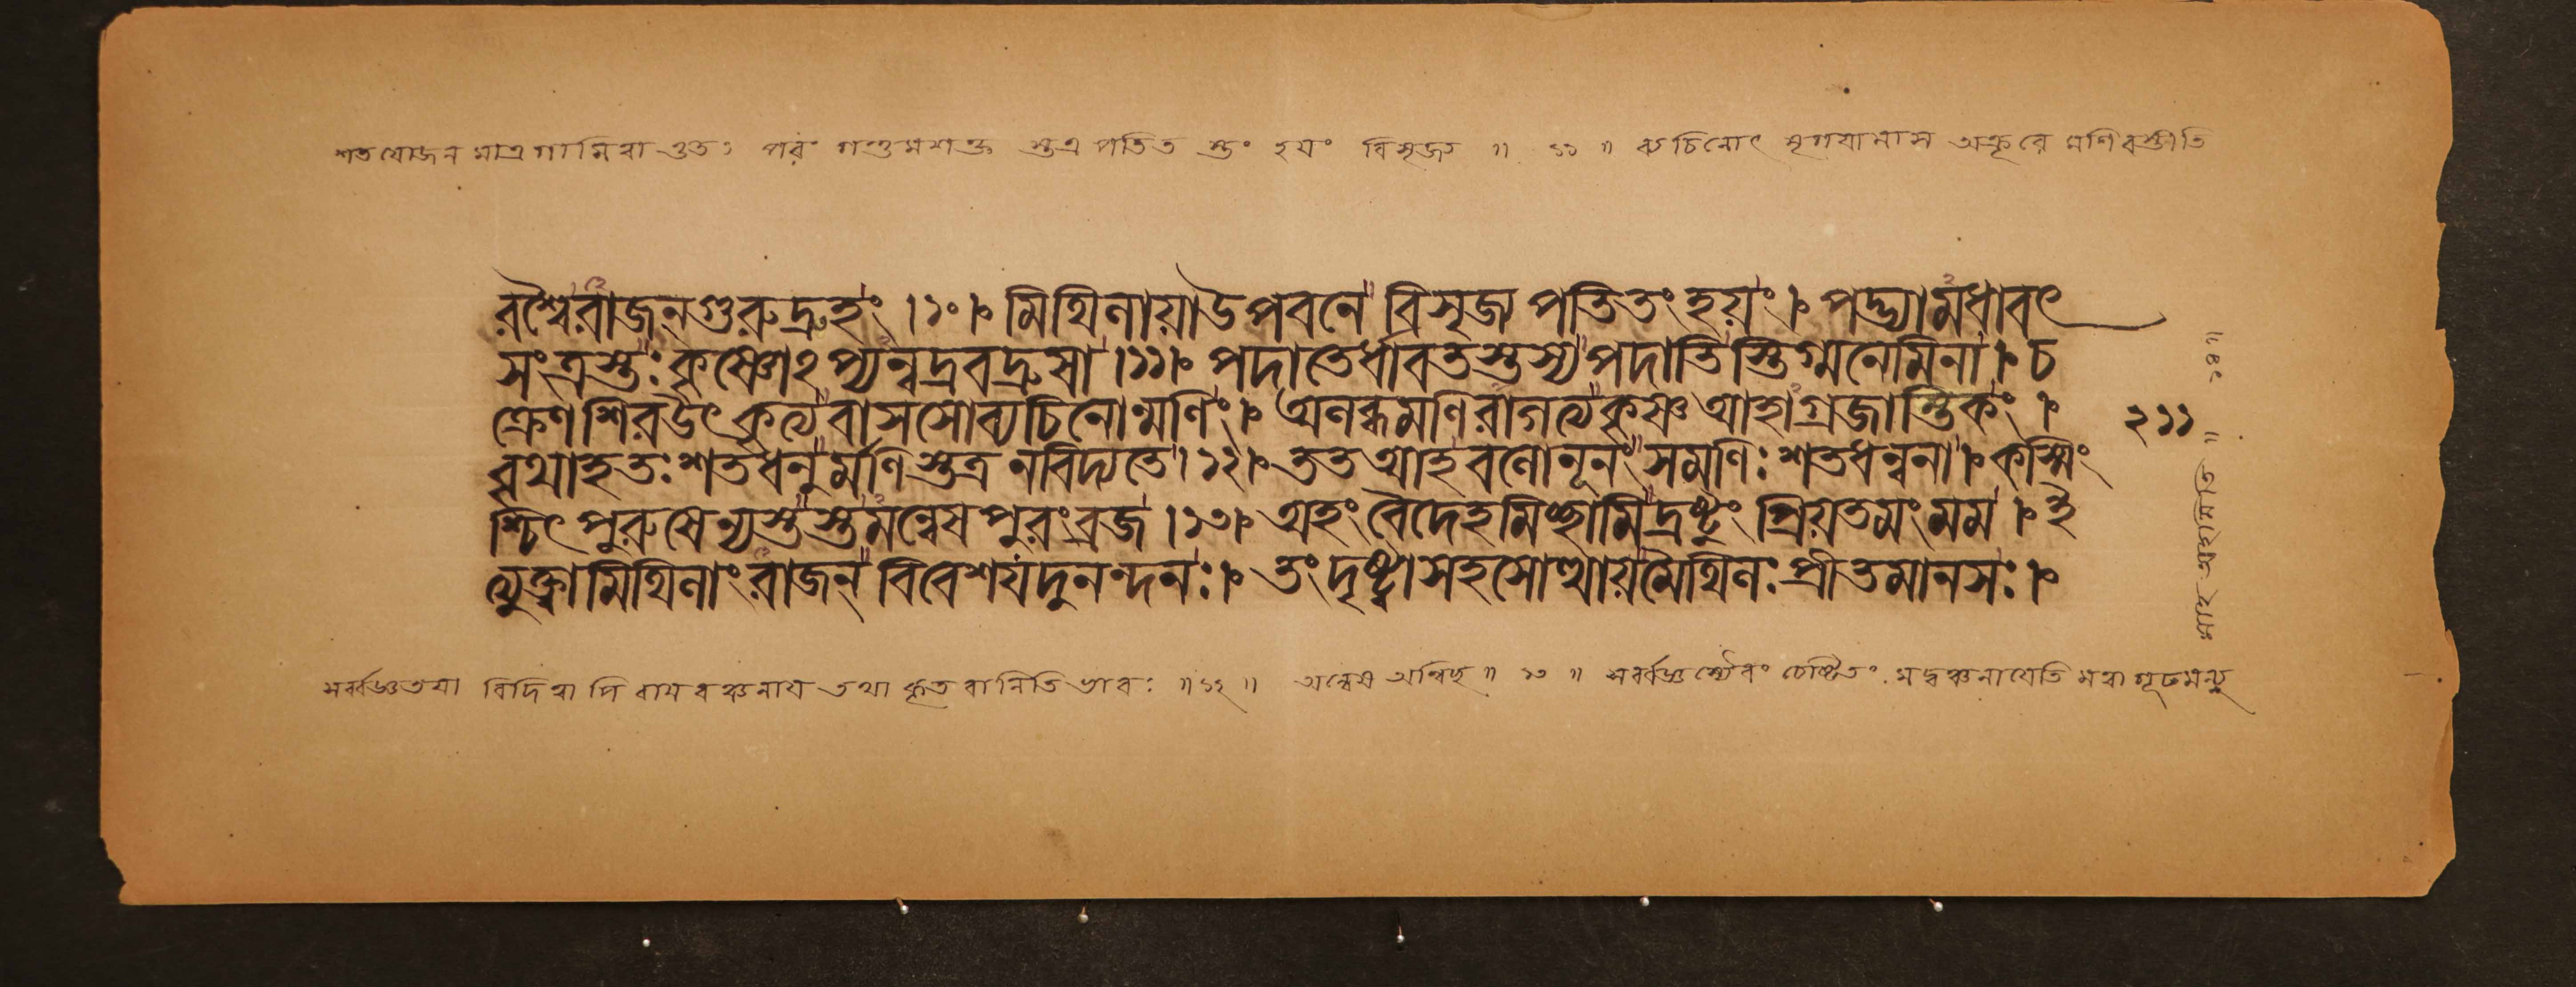 শতযোজনমাত্রগামিত্বাত্ততঃ পরং গন্তুমশক্ত স্তত্র পতিত স্তং হযং বিসৃজ্য ॥ ১১ ॥ ব্যচিনোৎ মৃগযামাস অক্রূরে মণিরস্তীতি
রশ্বৈরাজন্গুরুদ্রুহং ।১০। মিথিলায়াউপবনে বিসৃজ্য পতিতংহয়ং । পদ্ভ্যামধাবৎ
সংত্রস্তঃকৃষ্ণোঽপ্যন্বদ্রবদ্রুষা ।১১। পদাতের্ধাবতস্তস্যপদাতিস্তিগ্মনেমিনা । চ
ক্রেণশিরউৎকৃত্যবাসসোব্যচিনোন্মণিং । অলব্ধমণিরাগত্যকৃষ্ণআহাগ্রজান্তিকং ।
বৃথাহতঃশতধনুর্মণিস্তত্র নবিদ্যতে ।১২। ততআহবলোনূনংসমণিঃশতধন্বনা । কস্মিং
শ্চিৎপুরুষেন্যস্তস্তমন্বেষপুরংব্রজ ।১৩। অহংবৈদেহমিচ্ছামিদ্রষ্টুং প্রিয়তমংমম । ই
ত্যুক্ত্বামিথিলাংরাজন্ বিবেশযদুনন্দনঃ । তংদৃষ্ট্বাসহসোত্থায়মৈথিলঃপ্রীতমানসঃ ।
২১১
সর্ব্বজ্ঞতযা বিদিত্বাপি রামবঞ্চনায তথা কৃতবানিতি ভাবঃ ॥ ১২ ॥ অন্বেষ অন্বিচ্ছ ॥ ১৩ ॥ সর্ব্বজ্ঞস্যৈবং চেষ্টিতং মদ্বঞ্চনাযেতি মত্বা গূঢমন্যু
রাহ অহমিতি ॥ ১৪ ॥